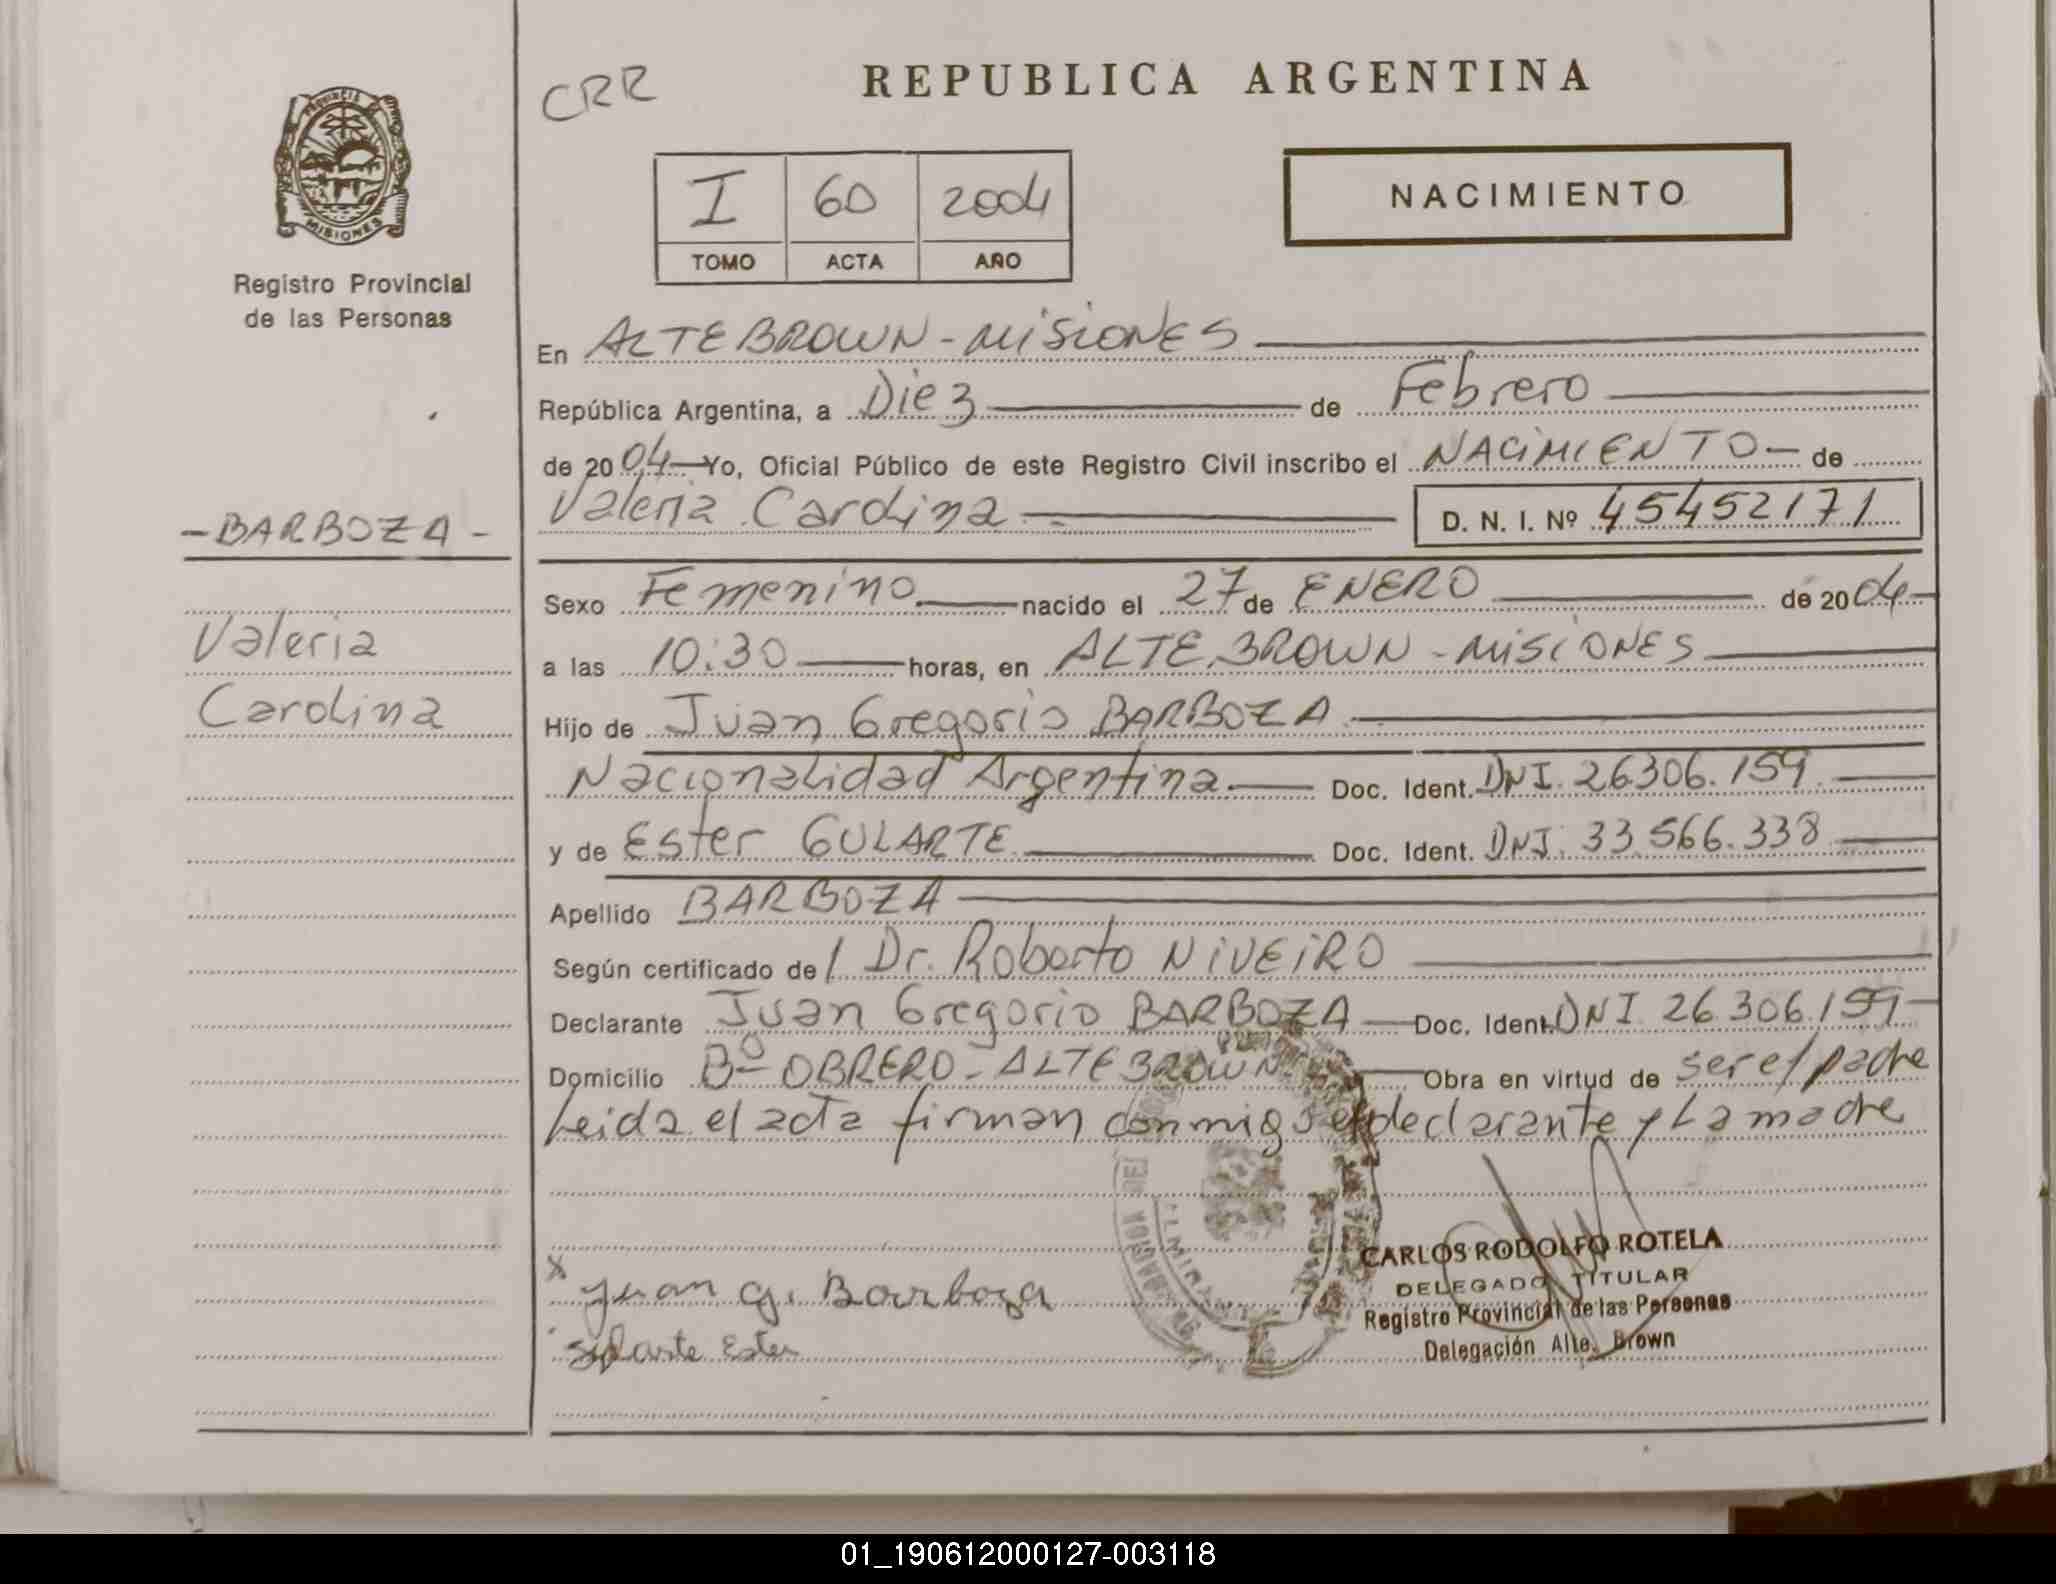 CRR
REPUBLICA ARGENTINA
PROVINCIA
MISIONES
I 60 2004
TOMO ACTA AÑO
NACIMIENTO
Registro Provincial
de las Personas
En ALTE BROWN - MISIONES
República Argentina, a Diez de Febrero
de 2004 Yo, Oficial Público de este Registro Civil inscribo el NACIMIENTO de
Valeria Carolina D. N. I. Nº 45452171
- BARBOZA -
Valeria
Carolina
Sexo Femenino nacido el 27 de ENERO de 2004
a las 10:30 horas, en ALTE BROWN - MISIONES
Hijo de Juan Gregorio BARBOZA
Nacionalidad Argentina Doc. Ident. DNI. 26306.159
y de Ester GULARTE Doc. Ident. DNI. 33.566.338
Apellido BARBOZA
Según certificado de / Dr. Roberto NIVEIRO
Declarante Juan Gregorio BARBOZA Doc. Ident. DNI 26306.159
Domicilio Bº OBRERO - ALTE BROWN Obra en virtud de ser el padre
Leida el acta firman conmigo el declarante y La madre
x Juan G. Barboza
Gularte Ester
CARLOS RODOLFO ROTELA
DELEGADO TITULAR
Registro Provincial de las Personas
Delegación Alte. Brown
01_190612000127-003118